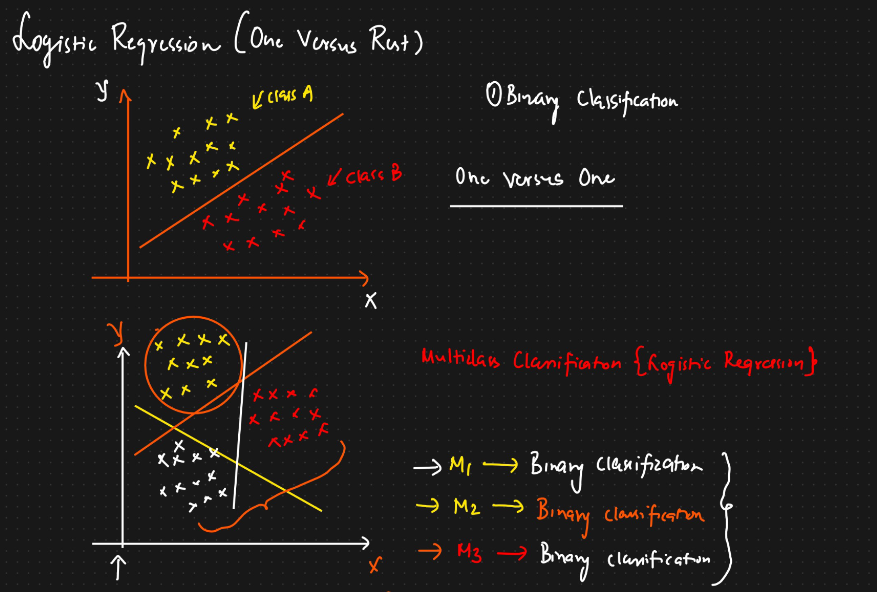 Logistic Regression (One Versus Rest)
y
Class A
① Binary Classification
Class B
One Versus One
x
y
Multiclass Classification {Logistic Regression}
→ M1 → Binary Classification
→ M2 → Binary Classification
→ M3 → Binary Classification
x